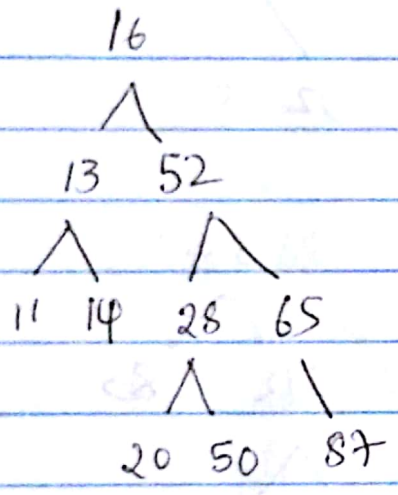 16
13 52
11 14 28 65
20 50 87